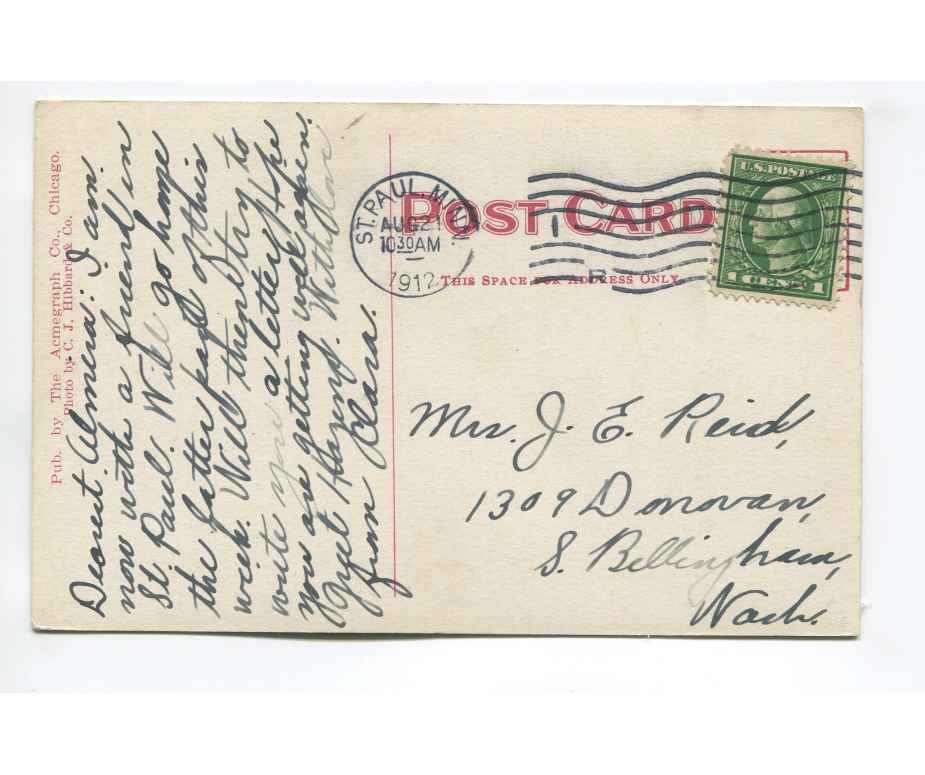 Pub. by The Acmegraph Co., Chicago.
Photo by C. J. Hibbard & Co.
Dearest Almeria: I am
now with a friend in
St. Paul. Will go home
the latter part of this
week. Will then try to
write you a letter. Hope
you are getting well again.
Greet Hazard. With love
from Clara.
POST CARD
THIS SPACE FOR ADDRESS ONLY
ST. PAUL, MINN.
AUG 21
10 30 AM
1912
U.S. POSTAGE
1 CENT 1
Mrs. J. E. Reid,
1309 Donovan,
S. Bellingham,
Wash.